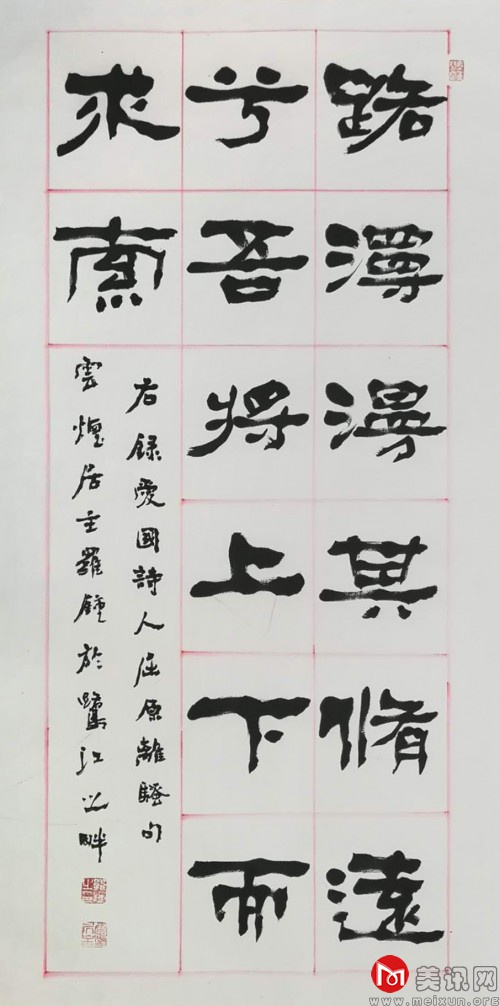 路漫漫其脩遠
兮吾将上下而
求索
右録愛國詩人屈原離騷句
雲煙居主羅鍾於鷺江之畔
美讯网
www.meixun.org